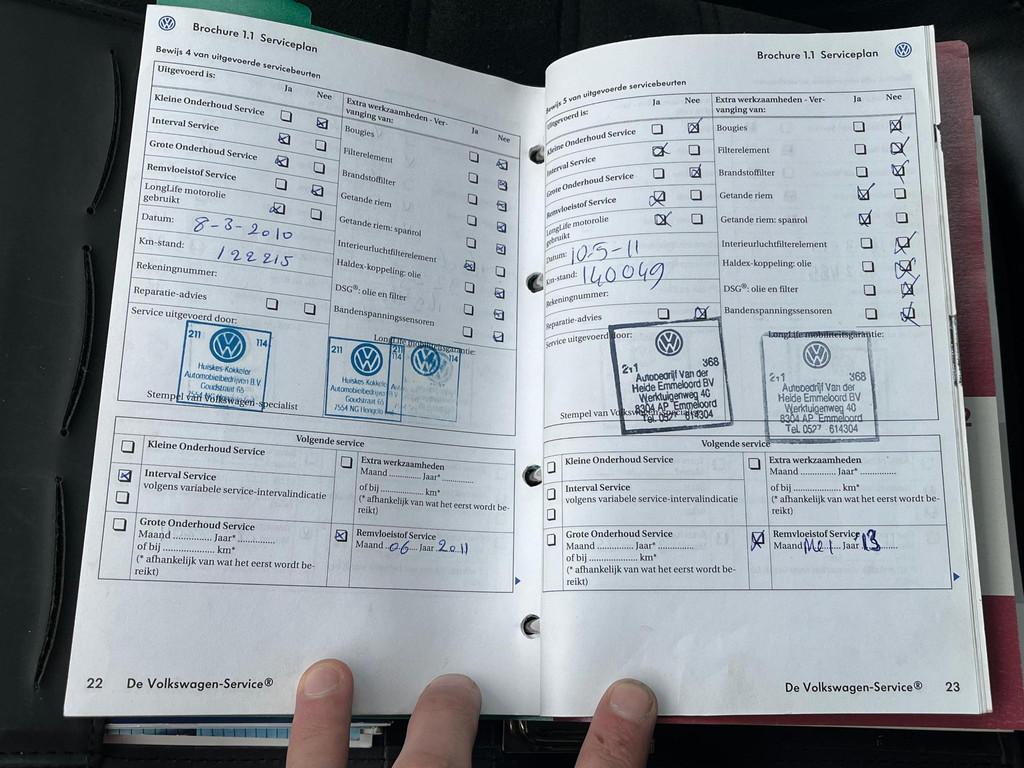 Brochure 1.1 Serviceplan
Bewijs 4 van uitgevoerde servicebeurten
Uitgevoerd is:
Ja Nee
Kleine Onderhoud Service
Interval Service
Grote Onderhoud Service
Remvloeistof Service
LongLife motorolie
gebruikt
Datum: 8-3-2010
Km-stand: 122215
Rekeningnummer:
Reparatie-advies
Service uitgevoerd door:
Extra werkzaamheden - Ver-
vanging van:
Ja Nee
Bougies
Filterelement
Brandstoffilter
Getande riem
Getande riem: spanrol
Interieurluchtfilterelement
Haldex-koppeling: olie
DSG®: olie en filter
Bandenspanningssensoren
LongLife mobiliteitsgarantie:
211 114
Huiskes-Kokkeler
Automobielbedrijven B.V.
Goudstraat 65
7554 NG Hengelo
211 114 114
Huiskes Kokkele
Automobielbedrijven
Goudstraat 65
7554 NG Hengelo
Stempel van Volkswagen-specialist
Volgende service
Kleine Onderhoud Service
Interval Service
volgens variabele service-intervalindicatie
Grote Onderhoud Service
Maand ............. Jaar* .............
of bij ............. km*
(* afhankelijk van wat het eerst wordt be-
reikt)
Extra werkzaamheden
Maand ............. Jaar* .............
of bij ............. km*
(* afhankelijk van wat het eerst wordt be-
reikt)
Remvloeistof Service
Maand 06 Jaar 2011
22 De Volkswagen-Service®
Brochure 1.1 Serviceplan
Bewijs 5 van uitgevoerde servicebeurten
Uitgevoerd is:
Ja Nee
Kleine Onderhoud Service
Interval Service
Grote Onderhoud Service
Remvloeistof Service
LongLife motorolie
gebruikt
Datum: 10-5-11
Km-stand: 140049
Rekeningnummer:
Reparatie-advies
Service uitgevoerd door:
Extra werkzaamheden - Ver-
vanging van:
Ja Nee
Bougies
Filterelement
Brandstoffilter
Getande riem
Getande riem: spanrol
Interieurluchtfilterelement
Haldex-koppeling: olie
DSG®: olie en filter
Bandenspanningssensoren
LongLife mobiliteitsgarantie:
211 368
Autobedrijf Van der
Heide Emmeloord BV
Werktuigenweg 40
8304 AP Emmeloord
Tel. 0527 614304
211 368
Autobedrijf Van der
Heide Emmeloord BV
Werktuigenweg 40
8304 AP Emmeloord
Tel. 0527 614304
Stempel van Volkswagen-Specialist
Volgende service
Kleine Onderhoud Service
Interval Service
volgens variabele service-intervalindicatie
Grote Onderhoud Service
Maand ............. Jaar* .............
of bij ............. km*
(* afhankelijk van wat het eerst wordt be-
reikt)
Extra werkzaamheden
Maand ............. Jaar* .............
of bij ............. km*
(* afhankelijk van wat het eerst wordt be-
reikt)
Remvloeistof Service
Maand Mei Jaar 13
De Volkswagen-Service® 23